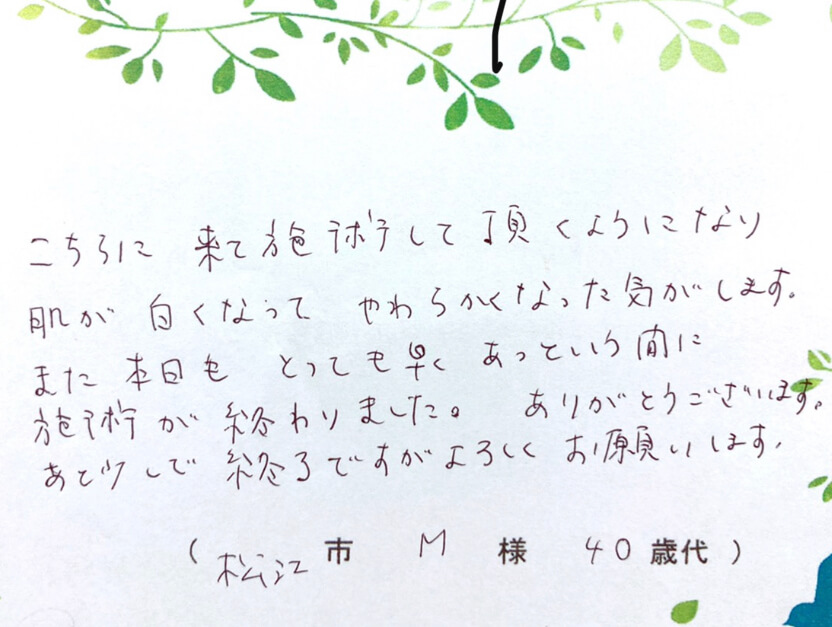 こちらに 来て施術して頂くようになり
肌が 白くなって やわらかくなった気がします。
また 本日も とっても早く あっという間に
施術が 終わりました。 ありがとうございます。
あと少しで 終了ですがよろしく お願いします。
（ 松江 市 M 様 40 歳代 ）